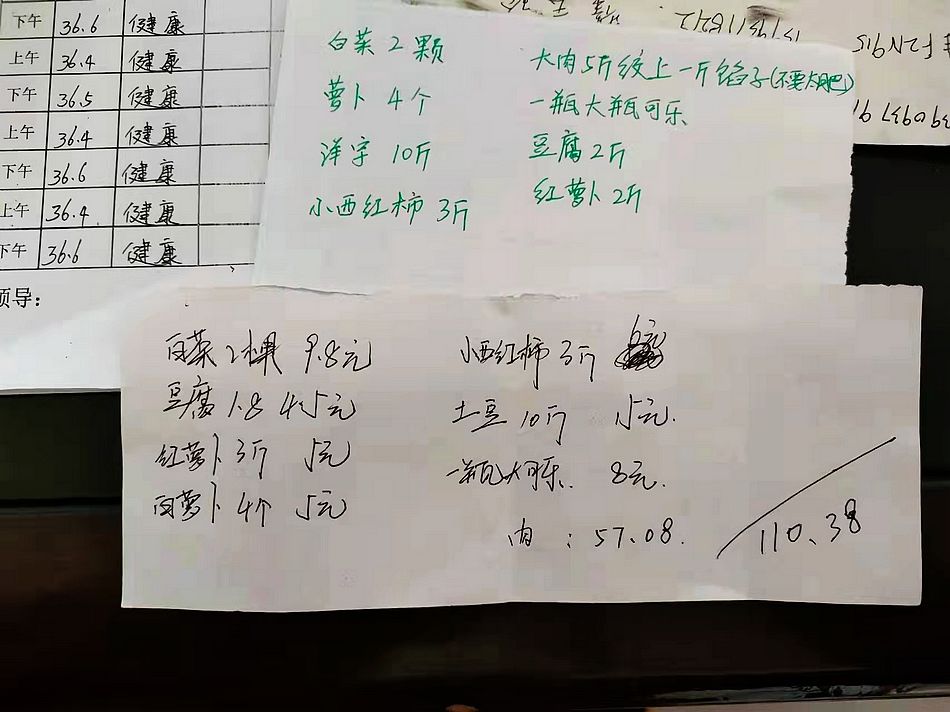 下午 36.6 健康
上午 36.4 健康
下午 36.5 健康
上午 36.4 健康
下午 36.6 健康
上午 36.4 健康
下午 36.6 健康
领导：
白菜 2 颗
萝卜 4个
洋芋 10斤
小西红柿 3斤
大肉5斤绞上一斤馅子(不要太肥)
一瓶大瓶可乐
豆腐2斤
红萝卜 2斤
白菜 2棵 9.8元
豆腐 1.8 4.5元
红萝卜 3斤 5元
白萝卜 4个 5元
小西红柿 3斤
土豆 10斤 15元.
一瓶大可乐. 8元.
肉：57.08.
110.38